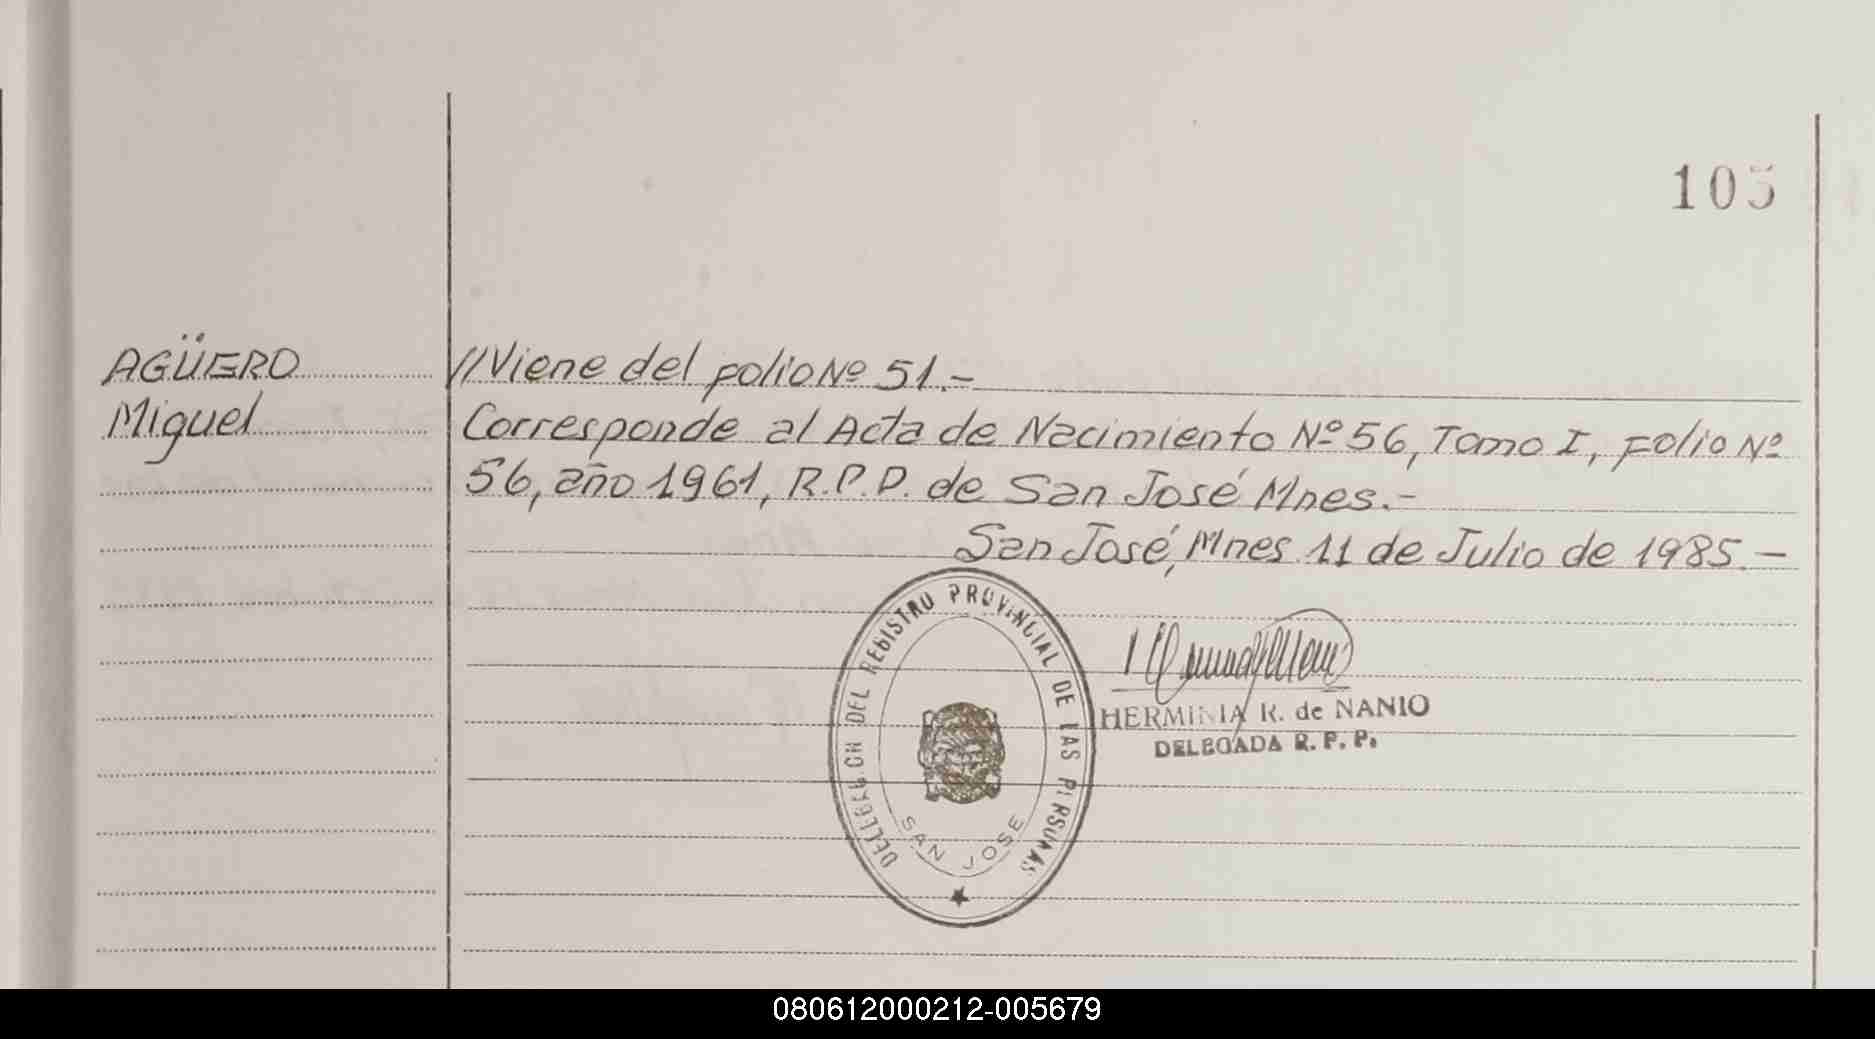 105
AGÜERO //Viene del folio Nº 51.-
Miguel Corresponde al Acta de Nacimiento Nº 56, Tomo I, Folio Nº
56, año 1961, R.P.P. de San José Mnes.-
San José, Mnes 11 de Julio de 1985.-
DELEGACION DEL REGISTRO PROVINCIAL DE LAS PERSONAS
SAN JOSE
HERMINIA R. de NANIO
DELEGADA R. P. P.
080612000212-005679